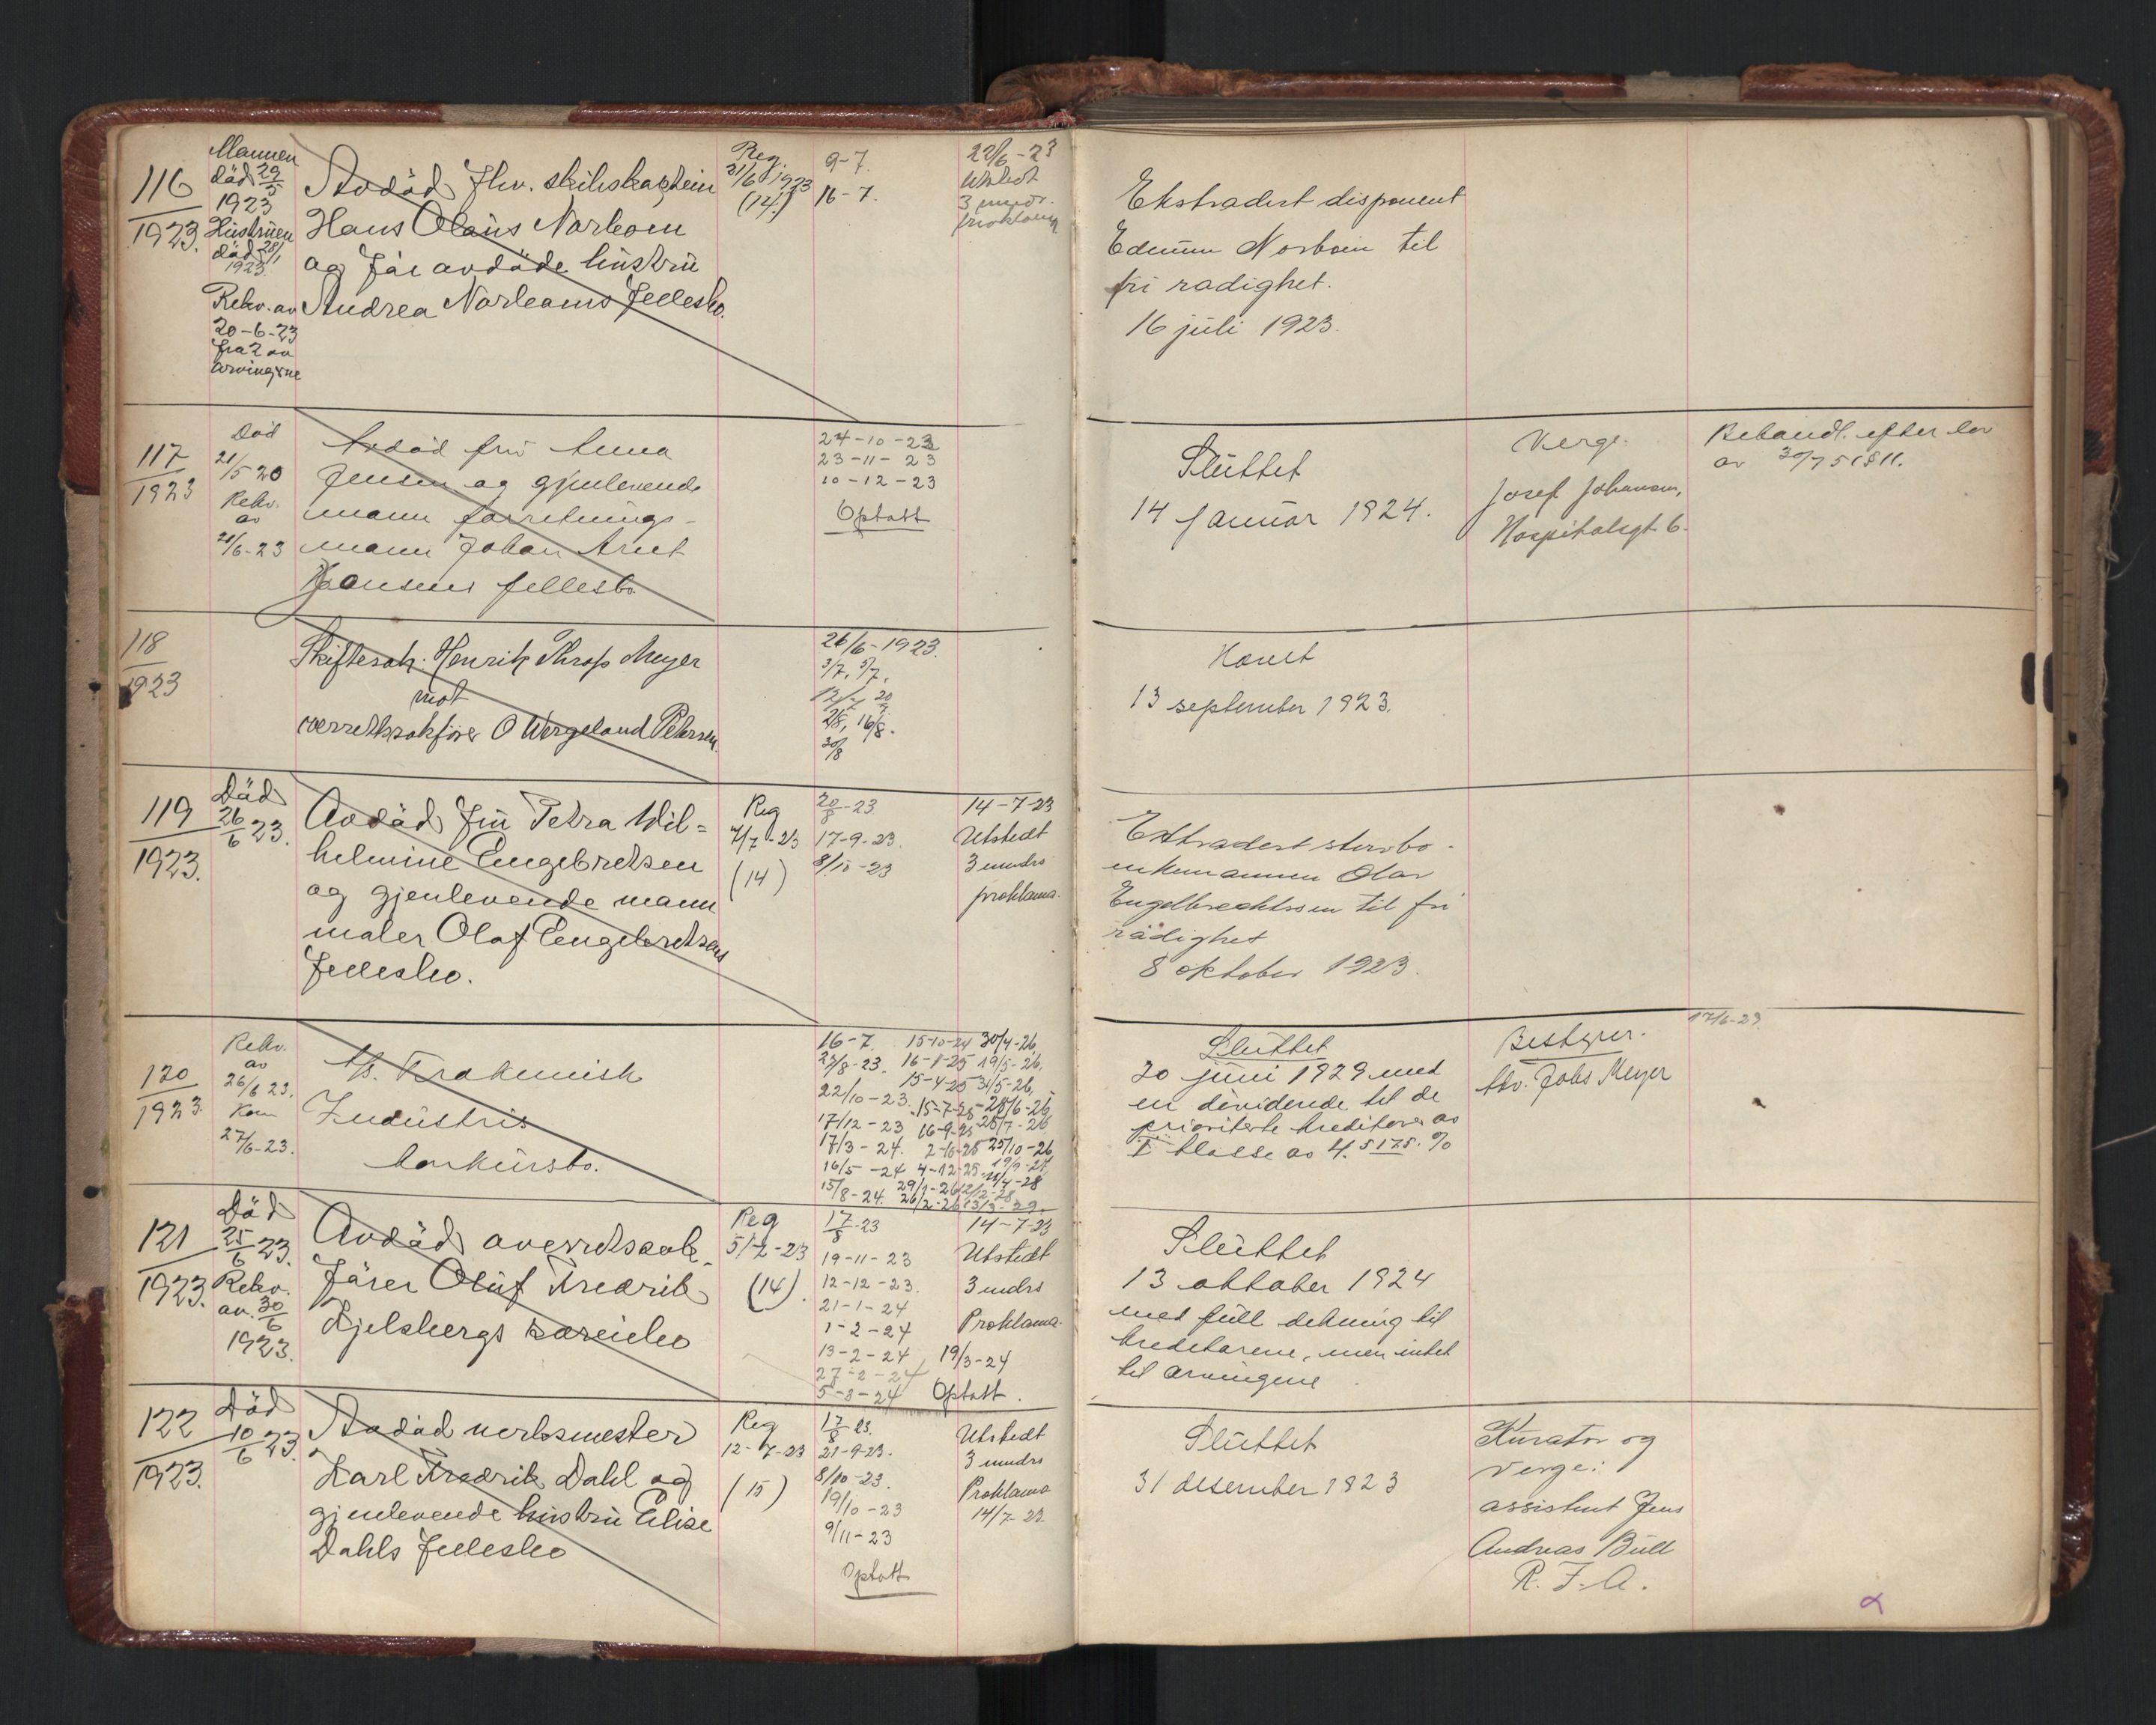 116
1923.
Mannen
död 29/5
1923
Hustruen
död 28/1
1923.
Rekv. av
20-6-23
fra 2 av
arvingerne
Avdöd fhv. skibskaptein
Hans Olaus Narbom
og før avdøde hustru
Andrea Narboms fellesbo.
Reg.
21/6 1923
(14)
9-7.
16-7.
22/6-23
Utstedt
3 mndr.
proklama
Ekstradert disponent
Edmun Norbom til
fri radighet.
16 juli 1923.
117
1923
Död
21/5 20
Rekv.
av
21/6-23
Avdöd fru Anna
Jensen og gjenlevende
mann forretnings-
mann Johan Arnt
Jansens fellesbo
24-10-23
23-11-23
10-12-23
Optatt
Sluttet
14 januar 1924.
Verge:
Josef Johansen,
Hospitalsgt 6.
Behandl. efter lov
av 30/7 5 1811.
118
1923
Skiftesak: Henrik Thrap Meyer
mot
overretssakfører O Wergeland Petersen.
26/6-1923.
3/7, 5/7,
2/8, 16/8.
30/8
Hævet
13 september 1923.
119
1923.
Död
26/6 23.
Avdöd fru Petra Wil-
helmine Engebretsen
og gjenlevende mann
maler Olaf Engebretsens
fellesbo.
Reg
4/7-23
(14)
20/8-23
17-9-23.
8/10-23
14-7-23
Utstedt
3 mndrs
proklama.
Extradert stervbo-
enkemannen Olav
Engelbrechtssen til fri
rådighet
8 oktober 1923.
120
1923
Rekv.
av
26/6 23.
Kom
27/6-23.
A/s. Krakemisk
Industris
konkursbo.
16-7. 15-10-24 30/4-26
27/8-23. 16-1-25 19/5-26,
15-4-25 31/5-26,
22/10-23. 15-7-25 28/6-26,
17/12-23 16-9-25 28/7-26
17/3-24. 25/10-26
16/5-24 4-12-25
15/8-24. 26/2-26
Sluttet
20 juni 1929 med
en dividende til de
prioriterte kreditorer av
I klasse av 4.5175. %
Bestyrer.
Adv. Jobs Meyer
17/6-29.
121
1923.
Död
25/6 23.
Rekv.
av. 30/6
1923.
Avdöd overretssak-
förer Oluf Fredrik
Kjelsbergs særeiebo
Reg
5/7-23
(14).
17/8-23
19-11-23
12-12-23.
21-1-24
1-2-24
13-2-24 19/3-24
27-2-24
5-8-24 Optatt.
14-7-23
Utstedt
3 mndrs
Proklama.
Sluttet
13 oktober 1924
med full dekning til
kreditorene, men intet
til arvingene.
122
1923.
Död
10/6 23.
Avdöd verksmester
Karl Fredrik Dahl og
gjenlevende hustru Elise
Dahls fellesbo
Reg
12-7-23
(15)
17/8 23.
21-9-23.
8/10-23.
19/10-23
9/11-23
Optatt
Utstedt
3 mndrs
Proklama
14/7-23.
Sluttet
31 desember 1923
Kurator og
verge:
assistent Jens
Andreas Bull
R. F. A.